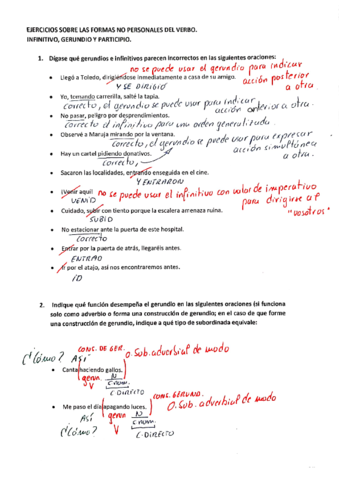 EJERCICIOS SOBRE LAS FORMAS NO PERSONALES DEL VERBO.
INFINITIVO, GERUNDIO Y PARTICIPIO.
1. Dígase qué gerundios e infinitivos parecen incorrectos en las siguientes oraciones:
no se puede usar el gerundio para indicar
• Llegó a Toledo, dirigiéndose inmediatamente a casa de su amigo. acción posterior
Y SE DIRIGIÓ a otra
• Yo, tomando carrerilla, salté la tapia.
correcto, el gerundio se puede usar para indicar
• No pasar, peligro por desprendimientos. acción anterior a otra.
correcto, el infinitivo para una orden generalizada
• Observé a Maruja mirando por la ventana.
correcto, el gerundio se puede usar para expresar
• Hay un cartel pidiendo donativos. acción simultánea
correcto, a otra.
• Sacaron las localidades, entrando enseguida en el cine.
Y ENTRARON
• ¡Venir aquí! no se puede usar el infinitivo con valor de imperativo
VENID para dirigirse a
• Cuidado, subir con tiento porque la escalera arrenaza ruina. "vosotros"
SUBID
• No estacionar ante la puerta de este hospital.
CORRECTO
• Entrar por la puerta de atrás, llegaréis antes.
ENTRAD
• Ir por el atajo, así nos encontraremos antes.
ID
2. Indique qué función desempeña el gerundio en las siguientes oraciones (si funciona
solo como adverbio o forma una construcción de gerundio; en el caso de que forme
una construcción de gerundio, indique a qué tipo de subordinada equivale:
CONS. DE GER.
¿Cómo? ASÍ O. Sub. adverbial de modo
• Canta haciendo gallos.
gerun. N
V C. nom.
C. DIRECTO CONS. GERUND.
• Me paso el día apagando luces. O. Sub. adverbial de modo
ASÍ gerun N
¿Cómo? V C. nom.
C. DIRECTO